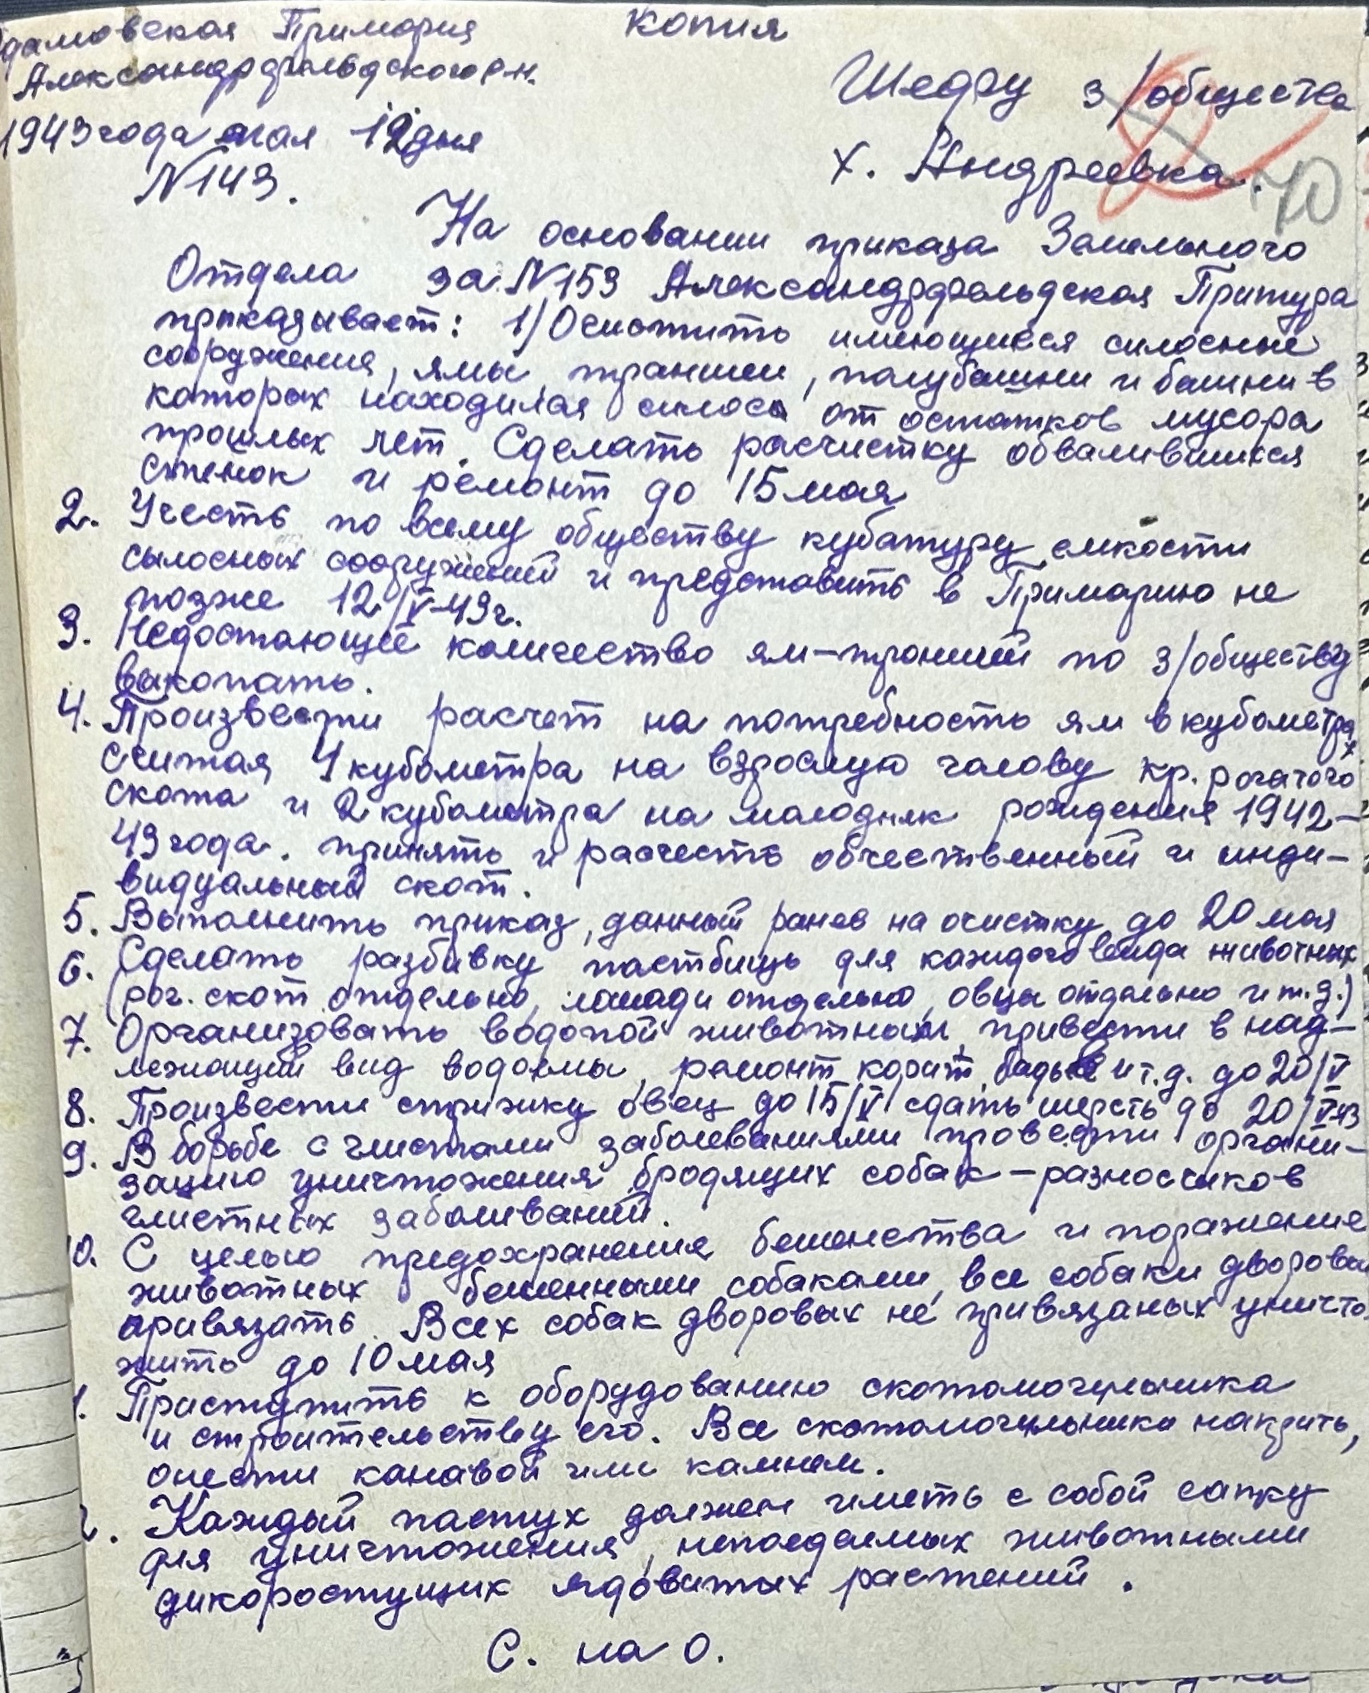 дамовская Примария
Копия
Александрфельдского р-н.
Шефу з/общества
1943 года мая 12 дня
х. Андреевка.
70
N 143.
На основании приказа Земельного
Отдела за N 153 Александрфельдская Притура
приказывает: 1) Очистить имеющиеся силосные
сооружения, ямы траншеи, полубашни и башни в
которых находился силос от остатков мусора
прошлых лет. Сделать расчистку обвалившихся
стенок и ремонт до 15 мая
2. Учесть по всему обществу кубатуру емкости
сылосных сооружений и представить в Примарию не
позже 12/V-43 г.
3. Недостающее количество ям-траншей по з/обществу
выкопать.
4. Произвести расчет на потребность ям в кубометрах
считая 4 кубометра на взрослую голову кр. рогатого
скота и 2 кубометра на молодняк рождения 1942-
43 года. принять и расчесть обчественный и инди-
видуальный скот.
5. Выполнить приказ, данный ранее на очистку до 20 мая
6. Сделать разбивку пастбищь для каждого вида животных
(рог. скот отдельно, лошади отдельно, овцы отдельно и т.д.)
7. Организовать водопой животных, привести в над-
лежащий вид водоемы, ремонт корит, бадье и т.д. до 20/V
8. Произвести стрижку овец до 15/V сдать шерсть до 20/V-43
9. В борьбе с глистами заболеваниями провести органи-
зацию уничтожения бродящих собак - разносчиков
глистных заболиваний.
10. С целью предохранения бешенства и поражение
животных бешенными собаками, все собаки дворовы
привязать. Всех собак дворовых не привязаных уничто
жить до 10 мая
1. Приступить к оборудованию скотомогильника
и строительству его. Все скотомогильники
онести канавой или камнем.
2. Каждый пастух должен иметь с собой сапку
для уничтожения, непоедаемых животными
дикоростущих ядовитых растений.
С. на о.